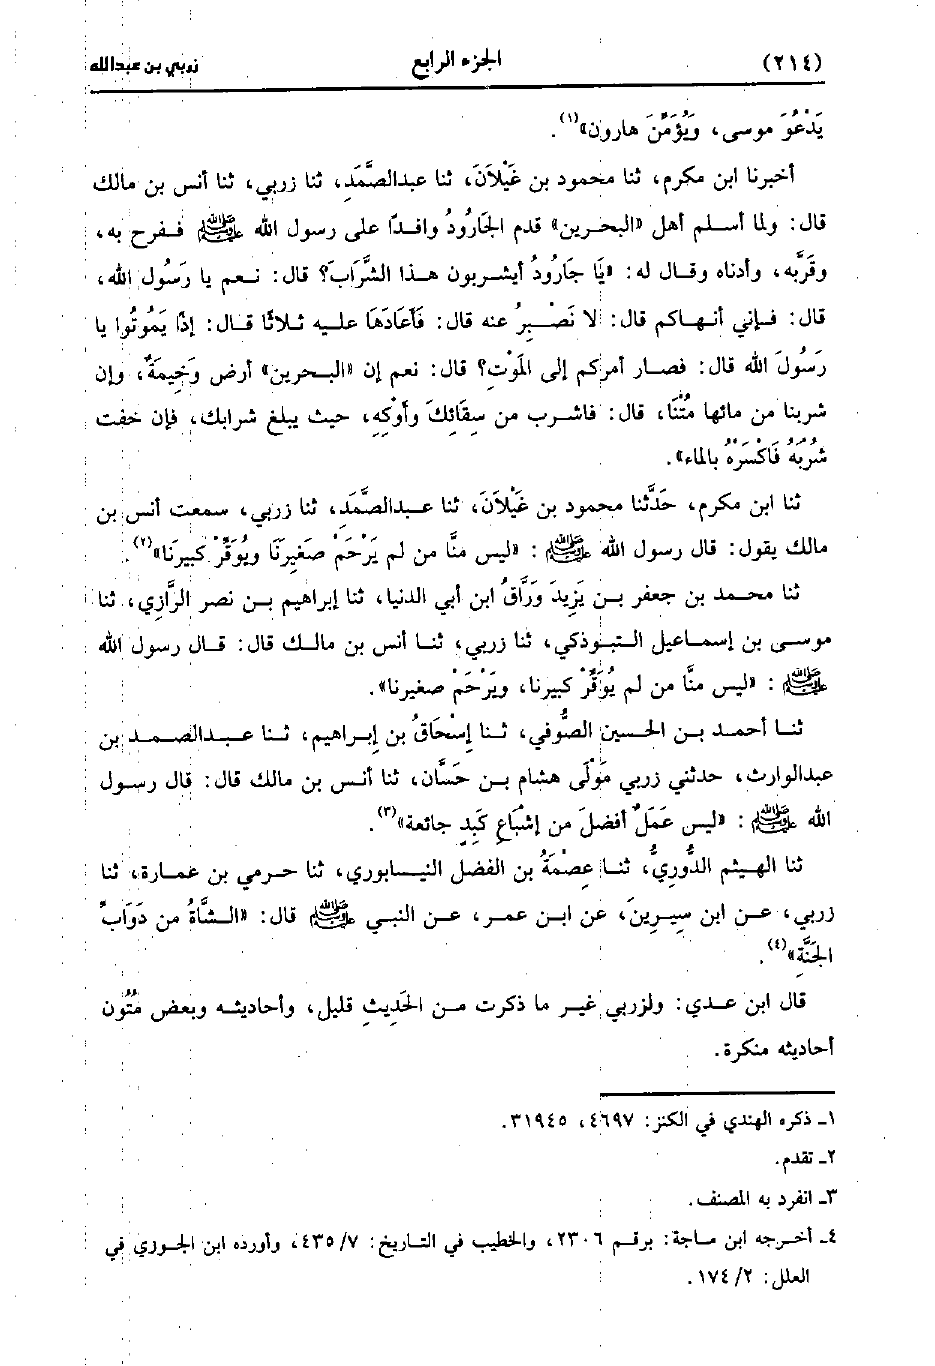 (٢١٤) الجزء الرابع زربي بن عبدالله
يَدْعُوَ موسى، ويُؤمِّنَ هارون»(١).
أخبرنا ابن مكرم، ثنا محمود بن غَيْلَانَ، ثنا عبدالصَّمَدِ، ثنا زربي، ثنا أنس بن مالك
قال: ولما أسلم أهل «البحرين» قدم الجَارُودُ وافدًا على رسول الله ﷺ ففرح به،
وقَرَّبه، وأدناه وقال له: «يَا جَارُودُ أيشربون هذا الشَّرَابَ؟ قال: نعم يا رَسُول الله،
قال: فإني أنهاكم قال: لا نَصْبِرُ عنه قال: فَأعَادَهَا عليه ثلاثًا قال: إذًا يَمُوتُوا يا
رَسُولَ الله قال: فصار أمركم إلى المَوْتِ؟ قال: نعم إن «البحرين» أرض وَخِيمَةٌ، وإن
شربنا من مائها مُتْنَا، قال: فاشرب من سِقَائِكَ وأوْكِهِ، حيث يبلغ شرابك، فإن خفت
شُرْبَهُ فَاكْسَرْهُ بالماء».
ثنا ابن مكرم، حَدَّثنا محمود بن غَيْلَانَ، ثنا عبدالصَّمَدِ، ثنا زربي، سمعت أنس بن
مالك يقول: قال رسول الله ﷺ : «ليس منَّا من لم يَرْحَمْ صَغِيرَنَا ويُوَقِّرْ كبيرَنَا»(٢).
ثنا محمد بن جعفر بن يَزِيدَ وَرَّاقُ ابن أبي الدنيا، ثنا إبراهيم بن نصر الرَّازِي، ثنا
موسى بن إسماعيل التبوذكي، ثنا زربي، ثنا أنس بن مالك قال: قال رسول الله
ﷺ : «ليس منَّا من لم يُوَقِّرْ كبيرنا، ويَرْحَمْ صغيرنا».
ثنا أحمد بن الحسين الصُّوفي، ثنا إِسْحَاقُ بن إبراهيم، ثنا عبدالصمد بن
عبدالوارث، حدثني زربي مَوْلَى هشام بن حَسَّان، ثنا أنس بن مالك قال: قال رسول
الله ﷺ : «ليس عَمَلٌ أفضلَ من إشْبَاعِ كَبِدٍ جائعة»(٣).
ثنا الهيثم الدُّورِيُّ، ثنا عِصْمَةُ بن الفضل النيسابوري، ثنا حرمي بن عمارة، ثنا
زربي، عن ابن سِيرِينَ، عن ابن عمر، عن النبي ﷺ قال: «الشَّاةُ من دَوَابِّ
الجَنَّةِ»(٤).
قال ابن عدي: ولزربي غير ما ذكرت من الحَدِيثِ قليل، وأحاديثه وبعض مُتُون
أحاديثه منكرة.
١ـ ذكره الهندي في الكنز: ٤٦٩٧، ٣١٩٤٥.
٢ـ تقدم.
٣ـ انفرد به المصنف.
٤ـ أخرجه ابن ماجة: برقم ٢٣٠٦، والخطيب في التاريخ: ٤٣٥/٧، وأورده ابن الجوزي في
العلل: ١٧٤/٢.